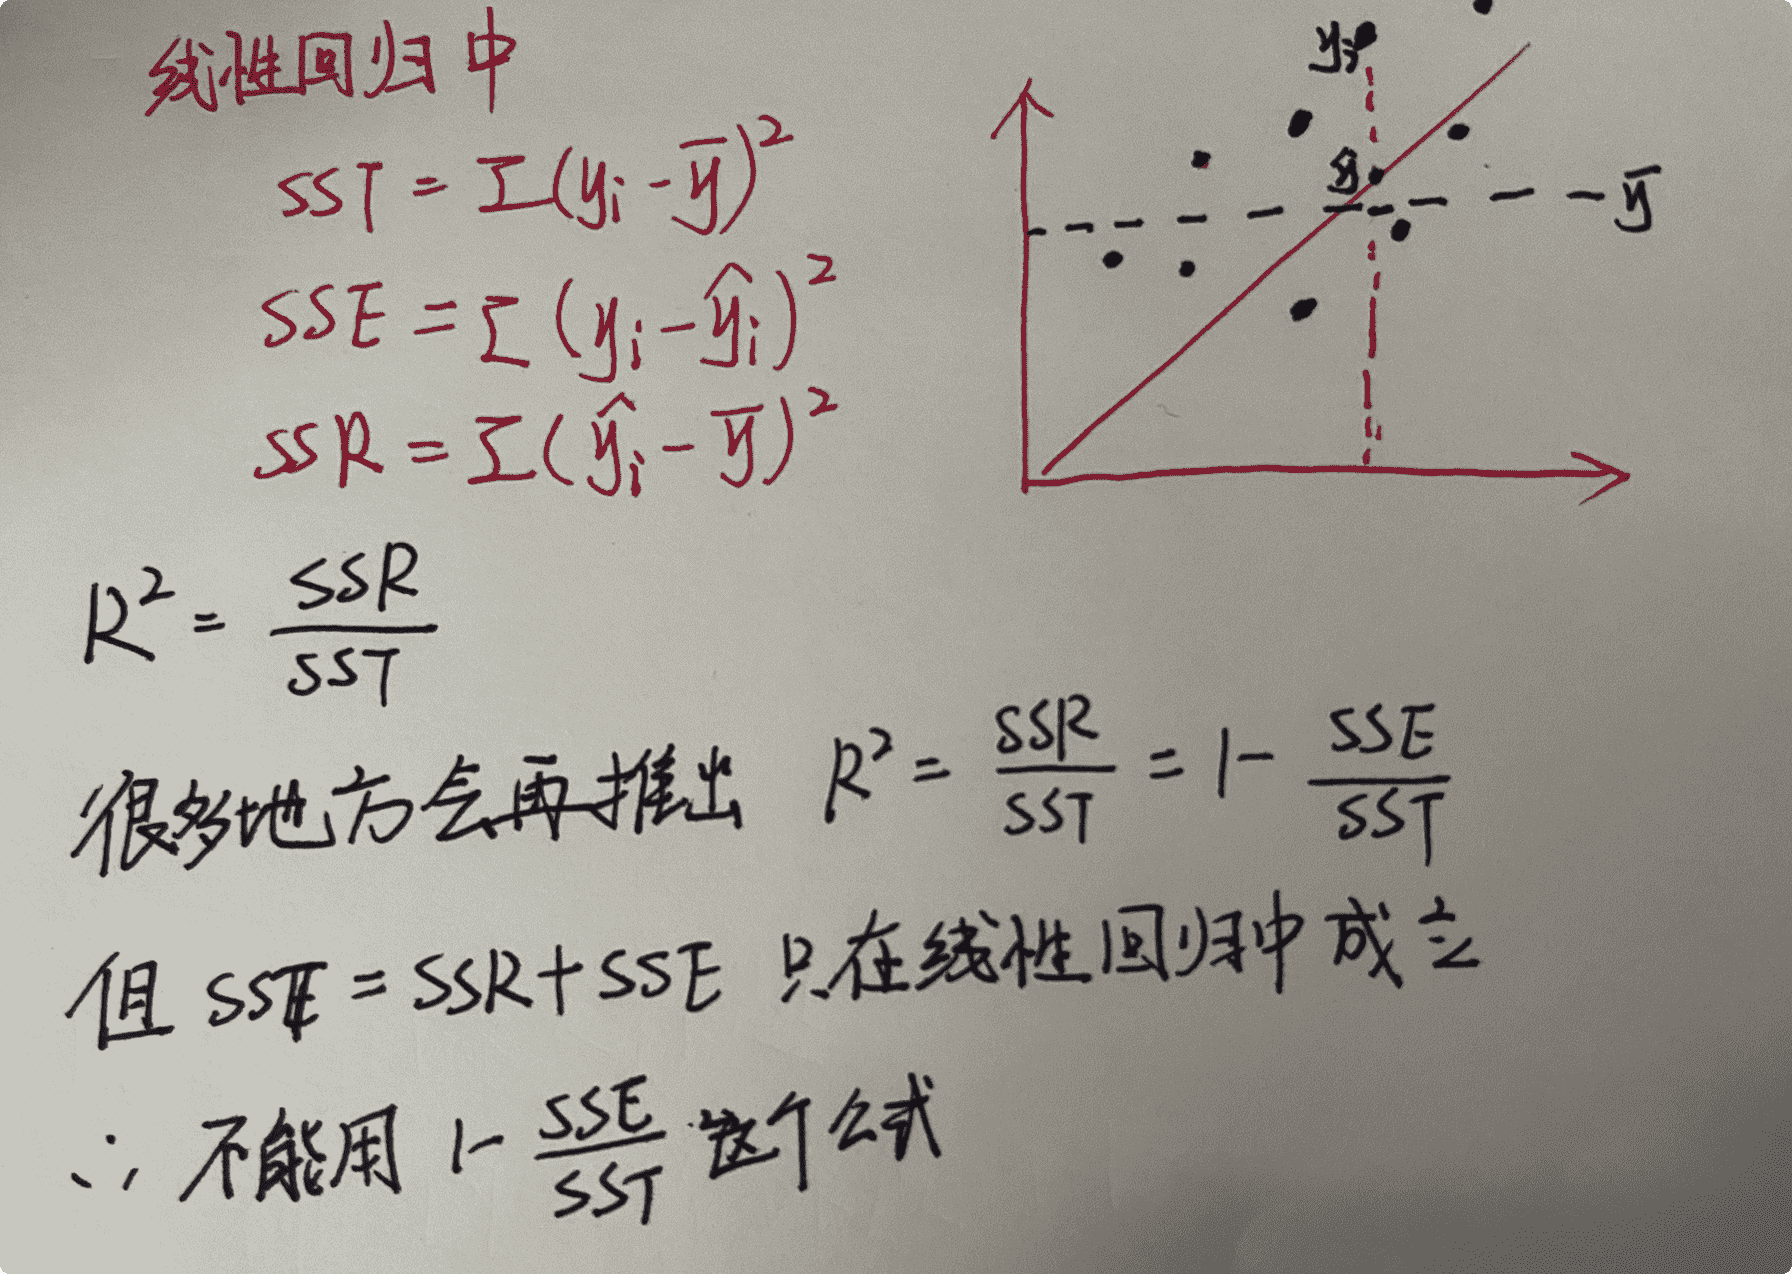 线性回归中
SST = Σ(yᵢ - ȳ)²
SSE = Σ(yᵢ - ŷᵢ)²
SSR = Σ(ŷᵢ - ȳ)²
yᵢ
ŷ
ȳ
R² = SSR/SST
很多地方会再推出 R² = SSR/SST = 1 - SSE/SST
但 SST = SSR + SSE 只在线性回归中成立
∴ 不能用 1 - SSE/SST 这个公式